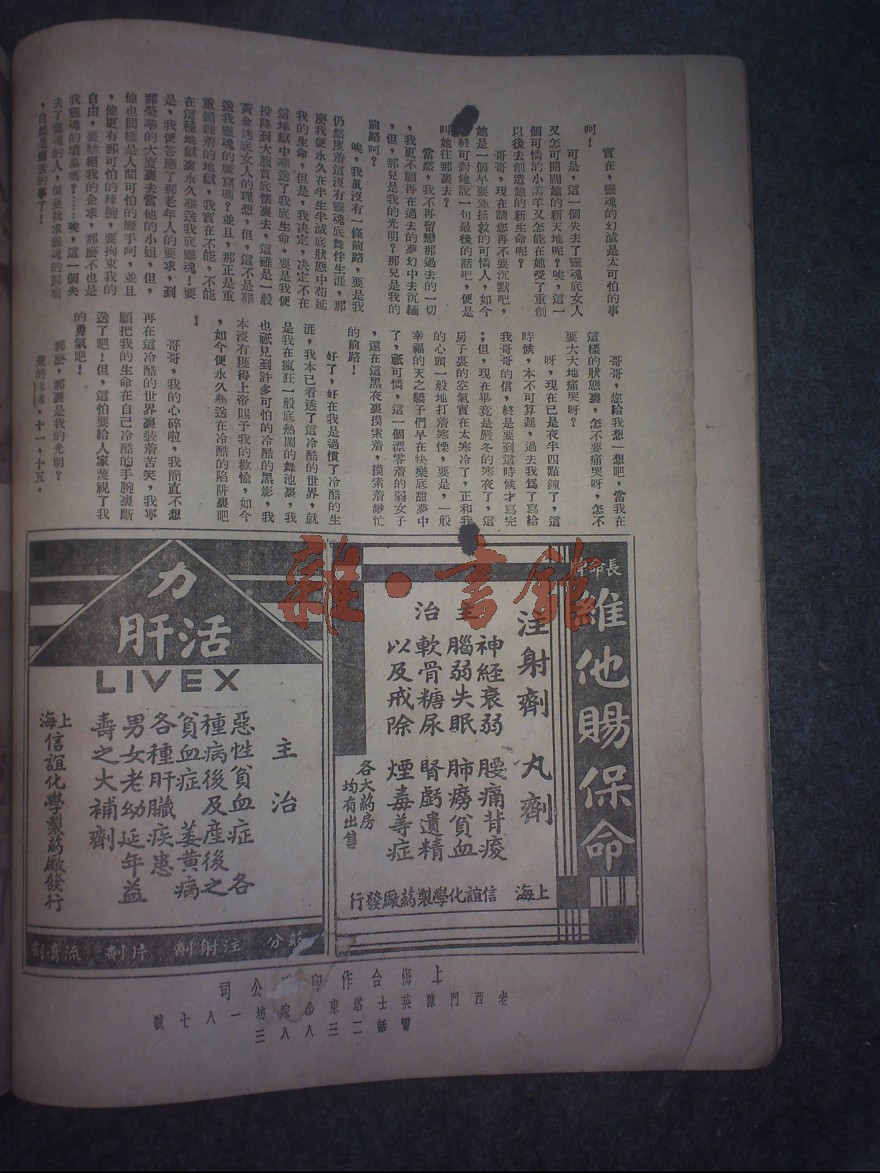 實在，靈魂的幻滅是太可怕的事
呵！
可是，這一個失去了靈魂底女人
又怎可開闢她的新天地呢？唉，這一
個可憐的小羔羊又怎能在她受了重創
以後去創造她的新生命呢？
哥哥，現在請您再不要沉默吧，
她是一個早要急拯救的可憐人，如今
終可對她說一句最後的話吧，便是
叫她往那裏去？
當然，我不再留戀那過去的一切
，我更不願再在過去的夢幻中去沉緬
，但，那兒是我的光明？那兒是我的
前路呵？
唉，我真沒有一條前路，要是我
仍然度着這沒有靈魂底舞伴生涯，那
麼我便永久在半生半滅底狀態中苟延
我的生命，但是，我決定，決定不在
這地獄中葬送了我底生命。要是我便
投降到大腹賈底懷裏去，這雖是一般
黃金迷底女人的理想，但，這不是那
送我靈魂的魔窟嗎？並且，那正是重
重鎖鍊着的地獄，我實在不能，不能
在這種地獄裏永久葬送我底靈魂！要
是，我便答應了那老年人的要求，到
那榮華的大廈裏去當他的小姐，但，
他也同樣是人間可怕的魔手阿，並且
，他更有那可怕的辣腕，要拘束我的
自由，要拒絕我的企求，那麼不也是
我靈魂的墳墓嗎？……唉，這一個失
去了靈魂的人，都要找求靈魂的歸宿
，自然是痛苦的事了！
哥哥，您給我想一想吧，當我在
這樣的狀態裏，怎不要痛哭呀，怎不
要大大地痛哭呀？
呀，現在已是夜半四點鐘了，這
時候，本不可算遲，過去我爲了寫給
我哥哥的信，終是要到這時候才寫完
；但，現在畢竟是嚴冬的寒夜了，這
房子裏的空氣實在太寒冷了，正和我
的心頭一般地打着寒慄，要是，一般
幸福的天之驕子們早在快樂底甜夢中
了，祇可憐，這一個漂零着的弱女子
，還在這黑夜裏摸索着，摸索着渺茫
的前路！
好了，好在我是過慣了冷酷的生
涯，我本已看透了這冷酷的世界，就
是我在瘋狂一般底熱鬧的舞池裏，我
也祇見到許多可怕的冷酷的黑影，我
本沒有獲得上帝賜予我的歡愉，如今
，如今便永久葬送在冷酷的陷阱裏吧
！
哥哥，我的心碎啦，我簡直不想
再在這冷酷的世界裏裝着苦笑，我寧
願把我的生命在自己冷酷的手腕裏斷
送了吧！但，這怕要給人家蔑視了我
的勇氣吧！
那麼，那裏是我的光明？
十一，十五。
長命牌
維他賜保命
注射劑 丸劑
主治
神經衰弱 腰痛背痠
腦弱失眠 肺癆貧血
軟骨糖尿 腎虧遺精
以及戒除 煙毒等症
各大葯房
均有出售
上海 信誼化學製葯廠發行
活肝力
LIVEX
主治
惡性貧血症 各
種病後及產後之
貧血症 萎黃病
各種肝臟疾患
男女老幼延年益
壽之大補劑
上海信誼化學製葯廠發行
分 注射劑 片劑 流膏劑
雜·書館
上海合作印公司
老西門陳英士塔東合坊一八七號
電話二三八八三